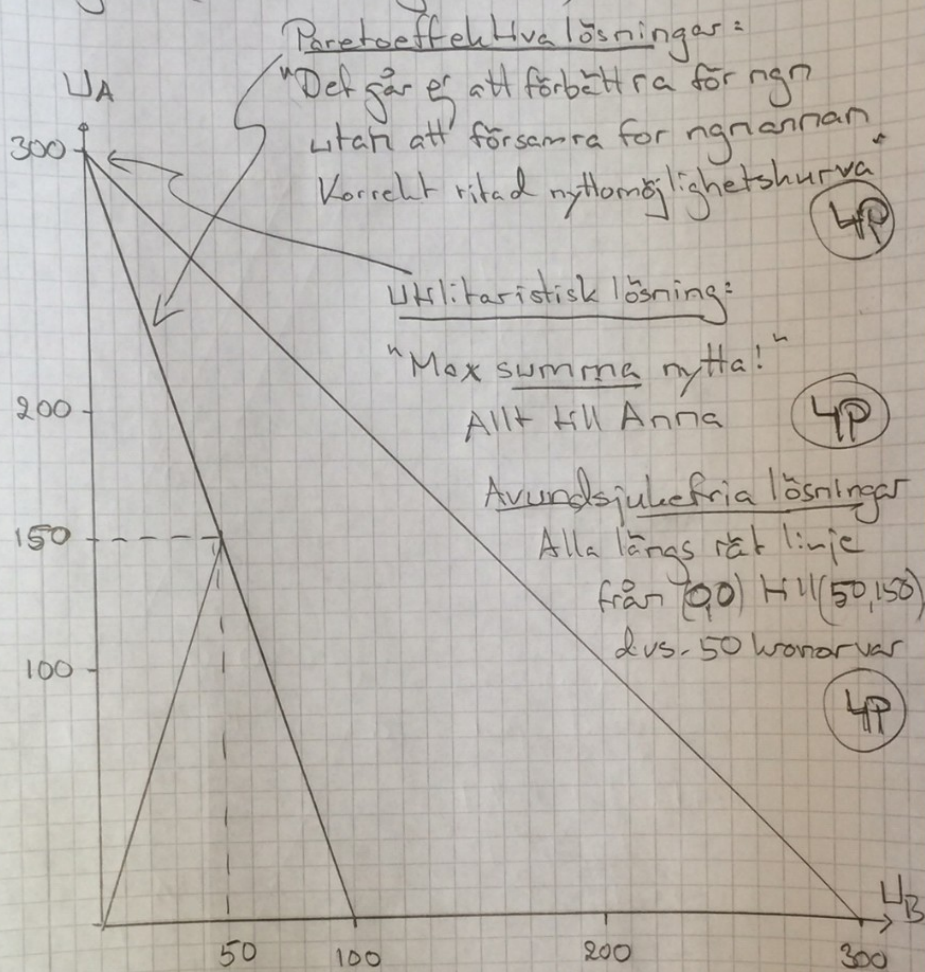 Paretoeffektiva lösningar:
"Det går ej att förbättra för ngn
utan att försämra för ngn annan"
Korrekt ritad nyttomöjlighetskurva
4P
UA
300
Utilitaristisk lösning:
"Max summa nytta!"
Allt till Anna
4P
200
Avundsjukefria lösningar
Alla längs rät linje
från (0,0) till (50,150)
dvs. 50 kronor var
4P
150
100
UB
50 100 200 300